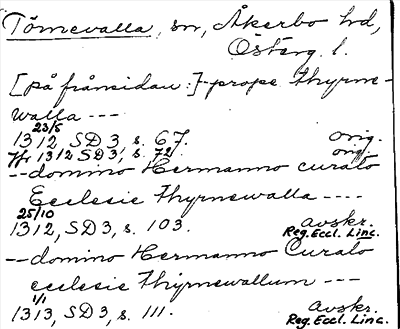 Törnevalla, sn, Åkerbo hd,
Österg. l.
[på frånsidan:] prope Thyrne-
walla ---
23/5
1312, SD 3, s. 67. orig.
7/6 1312 SD 3, s. 72. orig.
-- domino Hermanno curato
Ecclesie Thyrnewalla ----
25/10
1312, SD 3, s. 103. avskr.
Reg. Eccl. Linc.
-- domino Hermanno Curato
ecclesie Thyrnewallum ---
1/1
1313, SD 3, s. 111. Avskr.
Reg. Eccl. Linc.